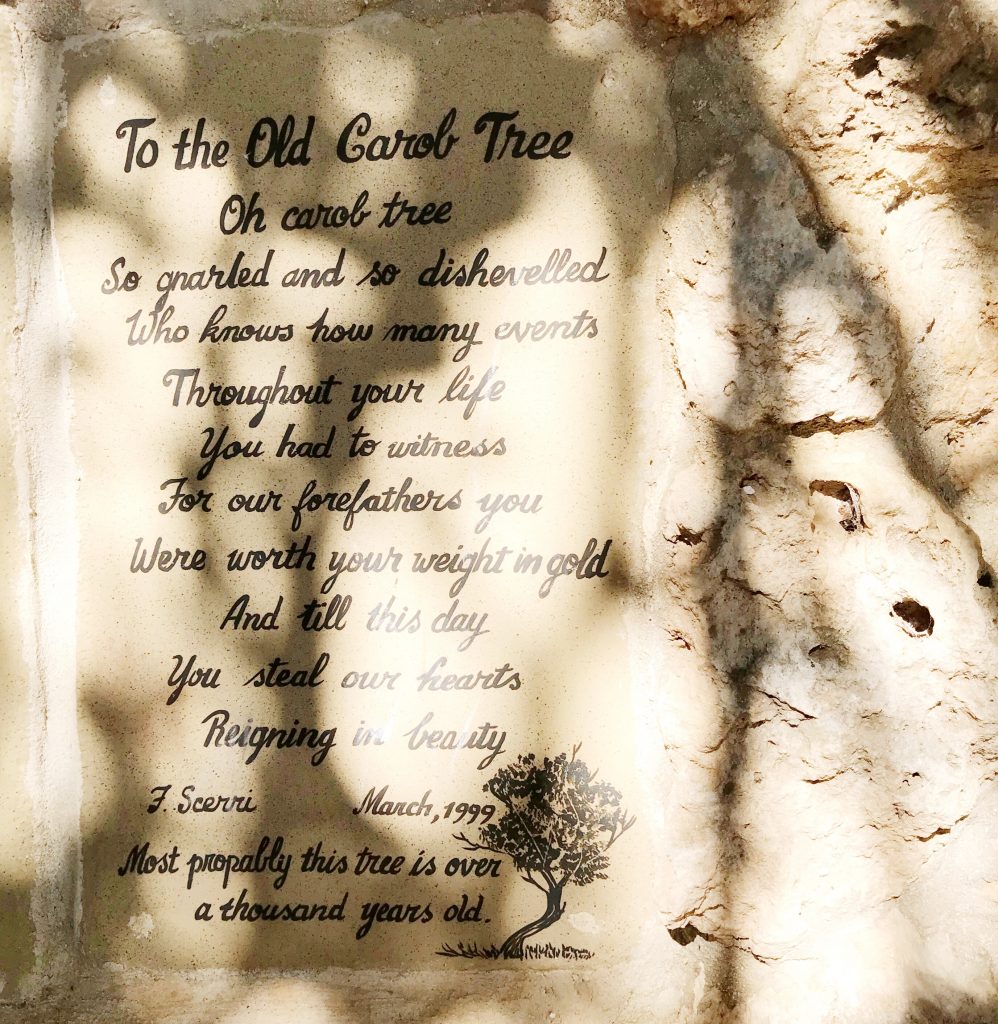 To the Old Carob Tree
Oh carob tree
So gnarled and so dishevelled
Who knows how many events
Throughout your life
You had to witness
For our forefathers you
Were worth your weight in gold
And till this day
You steal our hearts
Reigning in beauty
F. Scerri March, 1999
Most propably this tree is over
a thousand years old.